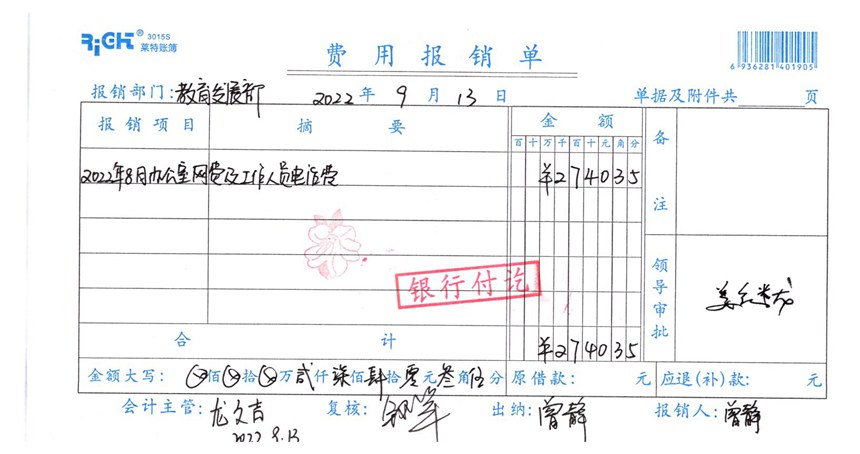 RiGHT® 3015S
莱特账簿
费用报销单
6 936281 401905
报销部门:教育发展部 2022年9月13日 单据及附件共 页
报销项目 摘要 金额 备注
百十万千百十元角分
2022年8月办公室网费及工作人员电话费 ¥274035
银行付讫
领导审批
合计 ¥274035
金额大写: 佰 拾 万贰仟柒佰肆拾零元叁角伍分 原借款: 元 应退(补)款: 元
会计主管:龙文吉 复核: 出纳:曾静 报销人:曾静
2022.9.13